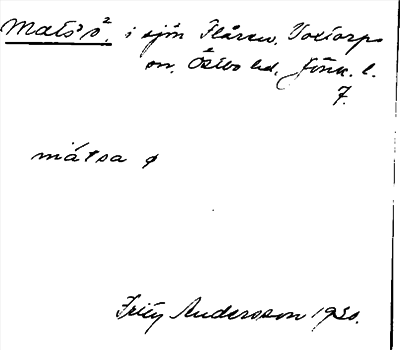 Mats' ö², i sjön Flåren, Voxtorps
sn, Östbo hd, Jönk. l.
7.
mátsa ø
Fritiof Anderson 1930.